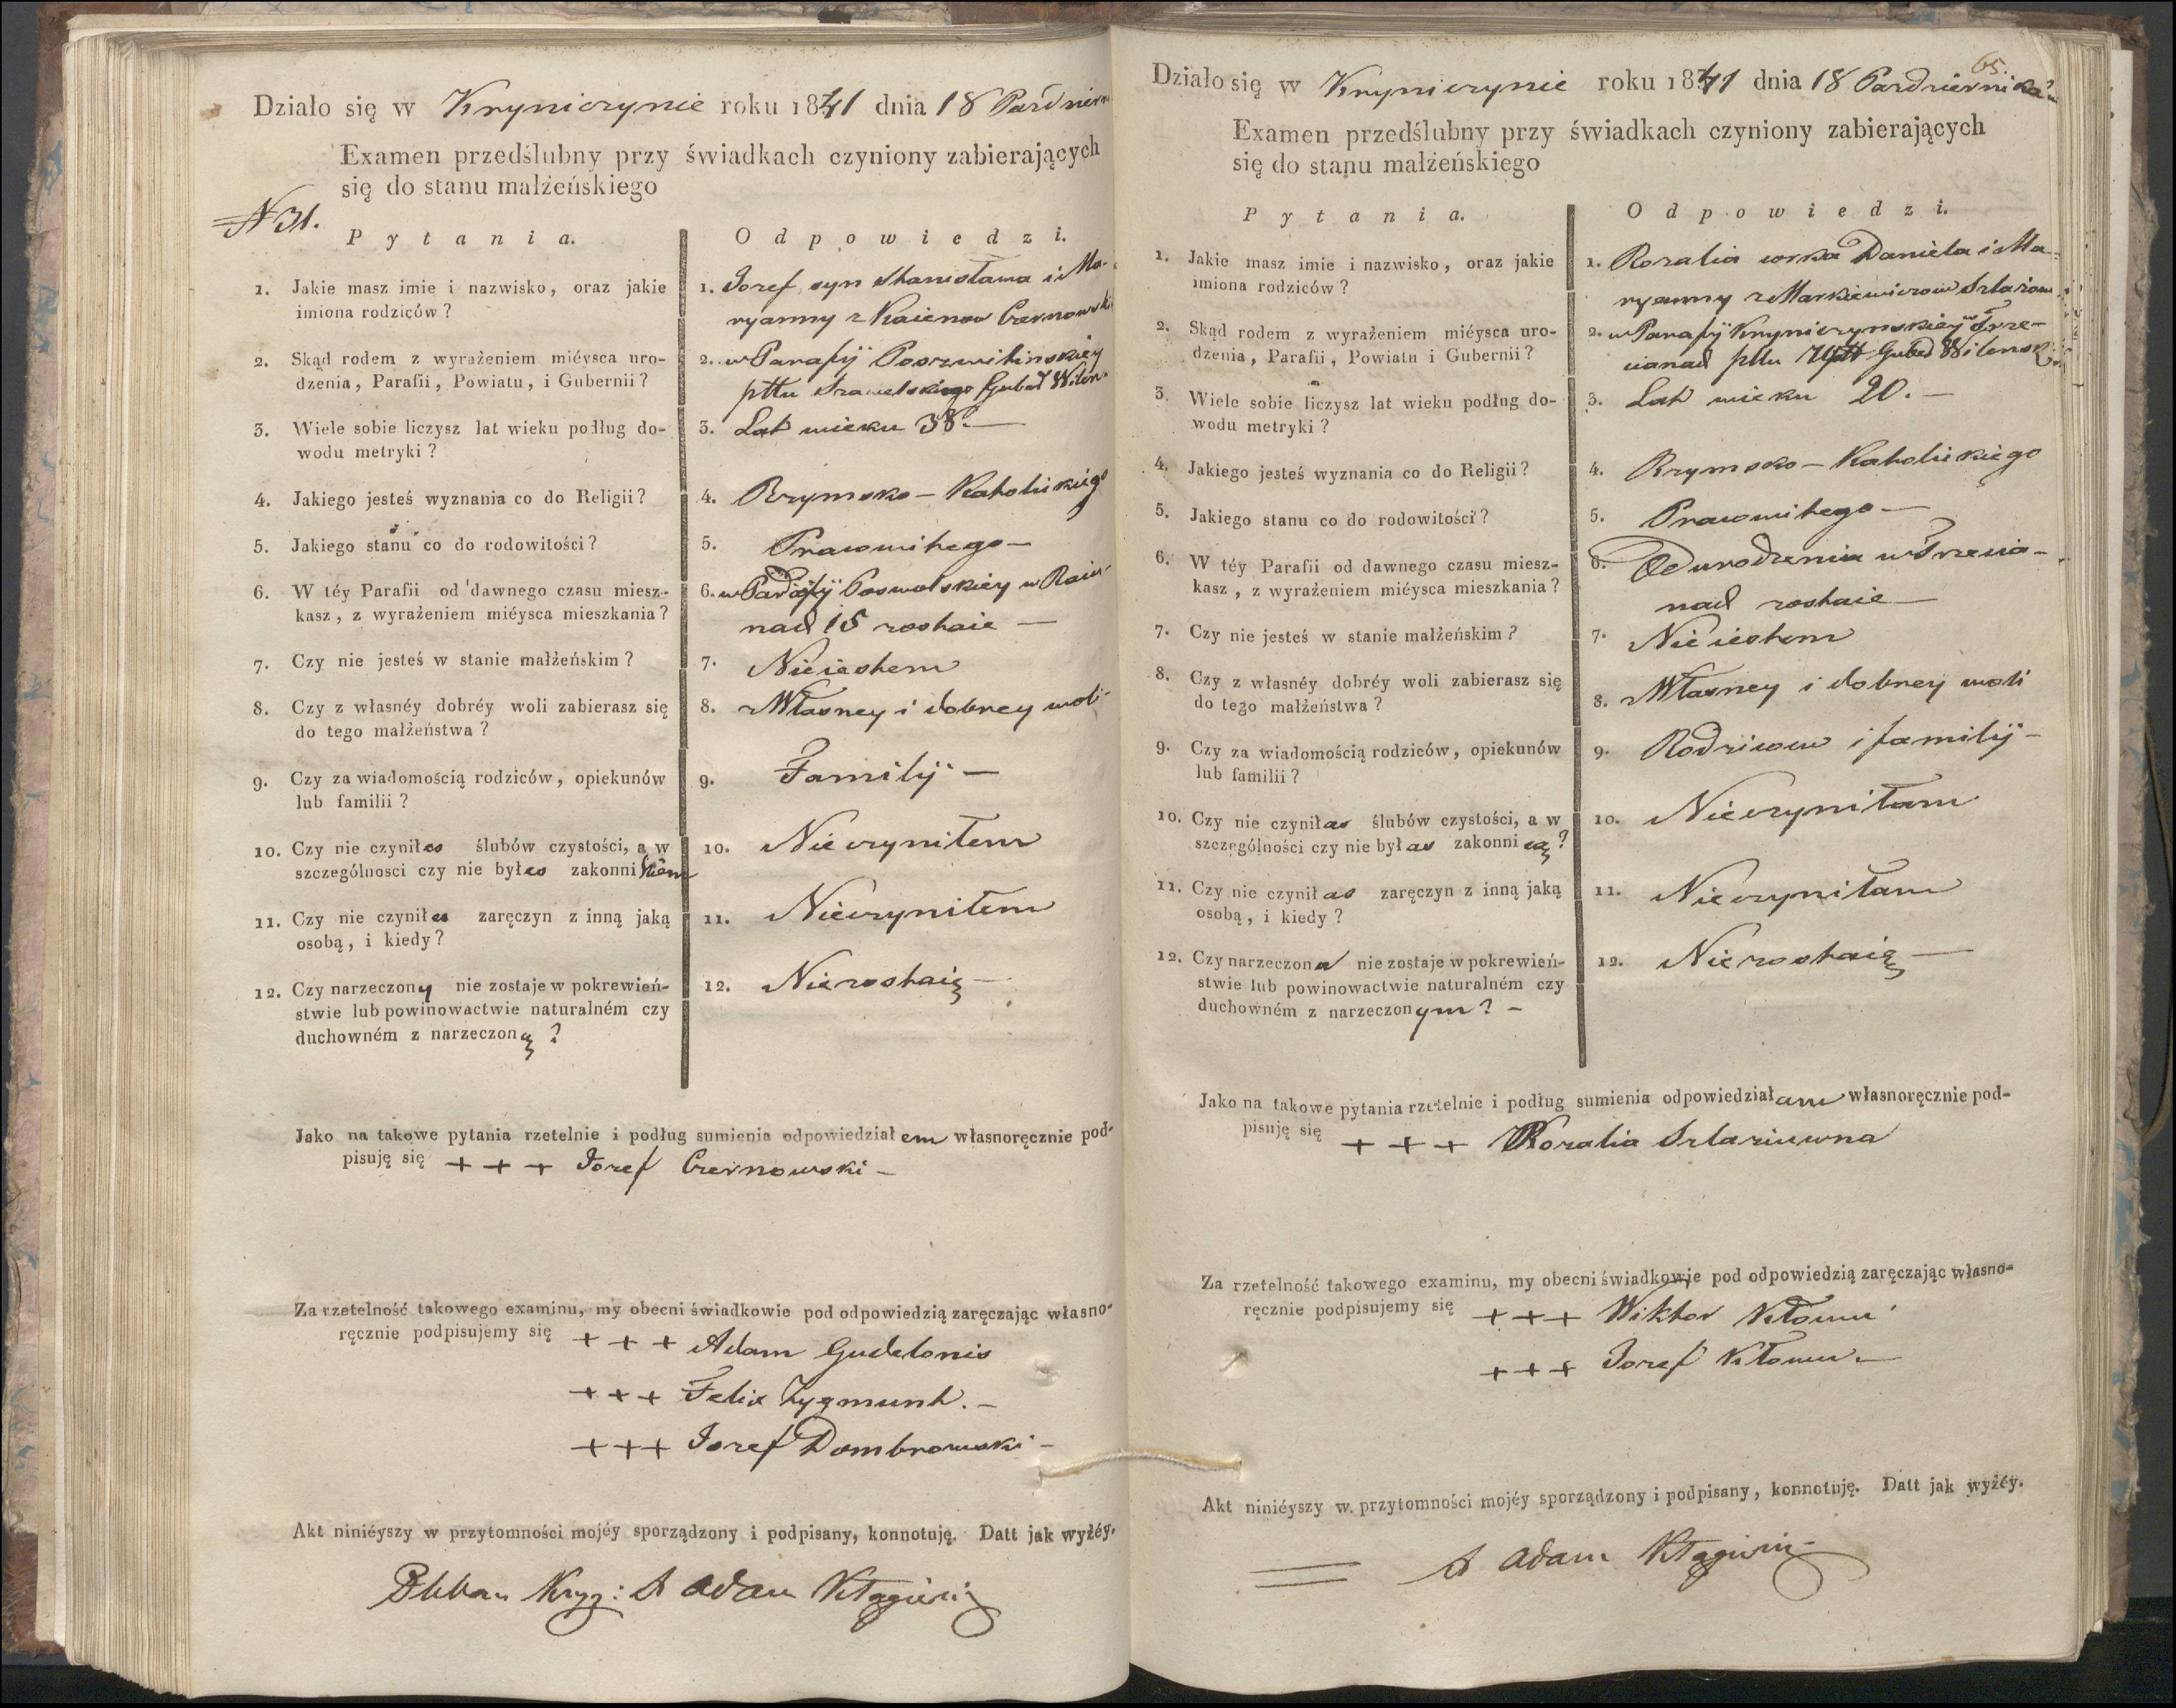 Działo się w Kryniczynie roku 1841 dnia 18 Pazdziern
Examen przedślubny przy świadkach czyniony zabierających
się do stanu małżeńskiego
N 31.
Pytania. Odpowiedzi.
1. Jakie masz imie i nazwisko, oraz jakie
imiona rodziców?
1. Jozef syn Stanisława i Ma-
ryanny z
2. Skąd rodem z wyrażeniem miéysca uro-
dzenia, Parafii, Powiatu, i Gubernii?
2. w Parafij
pttu Szawelskiego Guber Wilen
3. Wiele sobie liczysz lat wieku podług do-
wodu metryki?
3. Lat wieku 38. —
4. Jakiego jesteś wyznania co do Religii?
4. Rzymsko – Katholickiego
5. Jakiego stanu co do rodowitości?
5. Pracowitego —
6. W téy Parafii od dawnego czasu miesz-
kasz, z wyrażeniem miéysca mieszkania?
6. w Parafij Poswolskiey w
nad 15 zostaie —
7. Czy nie jesteś w stanie małżeńskim?
7. Nieiestem
8. Czy z własnéy dobréy woli zabierasz się
do tego małżeństwa?
8. z Własney i dobrey woli
9. Czy za wiadomością rodziców, opiekunów
lub familii?
9. Familij —
10. Czy nie czyniłes ślubów czystości, a w
szczególnosci czy nie byłes zakonnikiem
10. Nieczyniłem
11. Czy nie czyniłes zaręczyn z inną jaką
osobą, i kiedy?
11. Nieczyniłem
12. Czy narzeczony nie zostaje w pokrewień-
stwie lub powinowactwie naturalném czy
duchowném z narzeczoną?
12. Niezostaię —
Jako na takowe pytania rzetelnie i podług sumienia odpowiedziałem własnoręcznie pod-
pisuję się + + + Jozef Czernowski —
Za rzetelność takowego examinu, my obecni świadkowie pod odpowiedzią zaręczając własno-
ręcznie podpisujemy się + + + Adam Gudelonis
+ + + Felix Zygmunt. —
+ + + Jozef Dombrowski —
Akt niniéyszy w przytomności mojéy sporządzony i podpisany, konnotuję. Datt jak wyżéy.
Adam
65.
Działo się w Kryniczynie roku 1841 dnia 18 Pazdziernika
Examen przedślubny przy świadkach czyniony zabierających
się do stanu małżeńskiego
Pytania. Odpowiedzi.
1. Jakie masz imie i nazwisko, oraz jakie
imiona rodziców?
1. Rozalia corka Daniela i Ma-
ryanny z Markiewiczow
2. Skąd rodem z wyrażeniem miéysca uro-
dzenia, Parafii, Powiatu i Gubernii?
2. w Parafij Kryniczynskiey w Trze-
cianad pttu Guber Wilensk
3. Wiele sobie liczysz lat wieku podług do-
wodu metryki?
3. Lat wieku 20. —
4. Jakiego jesteś wyznania co do Religii?
4. Rzymsko – Katholickiego
5. Jakiego stanu co do rodowitości?
5. Pracowitego —
6. W téy Parafii od dawnego czasu miesz-
kasz, z wyrażeniem miéysca mieszkania?
6. Od urodzenia w Trzecia-
nad zostaie —
7. Czy nie jesteś w stanie małżeńskim?
7. Nieiestem
8. Czy z własnéy dobréy woli zabierasz się
do tego małżeństwa?
8. z Własney i dobrey woli
9. Czy za wiadomością rodziców, opiekunów
lub familii?
9. Rodzicow i familij —
10. Czy nie czyniłas ślubów czystości, a w
szczególności czy nie byłas zakonnicą?
10. Nieczyniłam
11. Czy nie czyniłas zaręczyn z inną jaką
osobą, i kiedy?
11. Nieczyniłam
12. Czy narzeczona nie zostaje w pokrewień-
stwie lub powinowactwie naturalném czy
duchowném z narzeczonym? —
12. Niezostaię —
Jako na takowe pytania rzetelnie i podług sumienia odpowiedziałam własnoręcznie pod-
pisuję się + + + Rozalia Szlariuwna
Za rzetelność takowego examinu, my obecni świadkowie pod odpowiedzią zaręczając własno-
ręcznie podpisujemy się + + + Wiktor
+ + + Jozef
Akt niniéyszy w przytomności mojéy sporządzony i podpisany, konnotuję. Datt jak wyżéy.
Adam